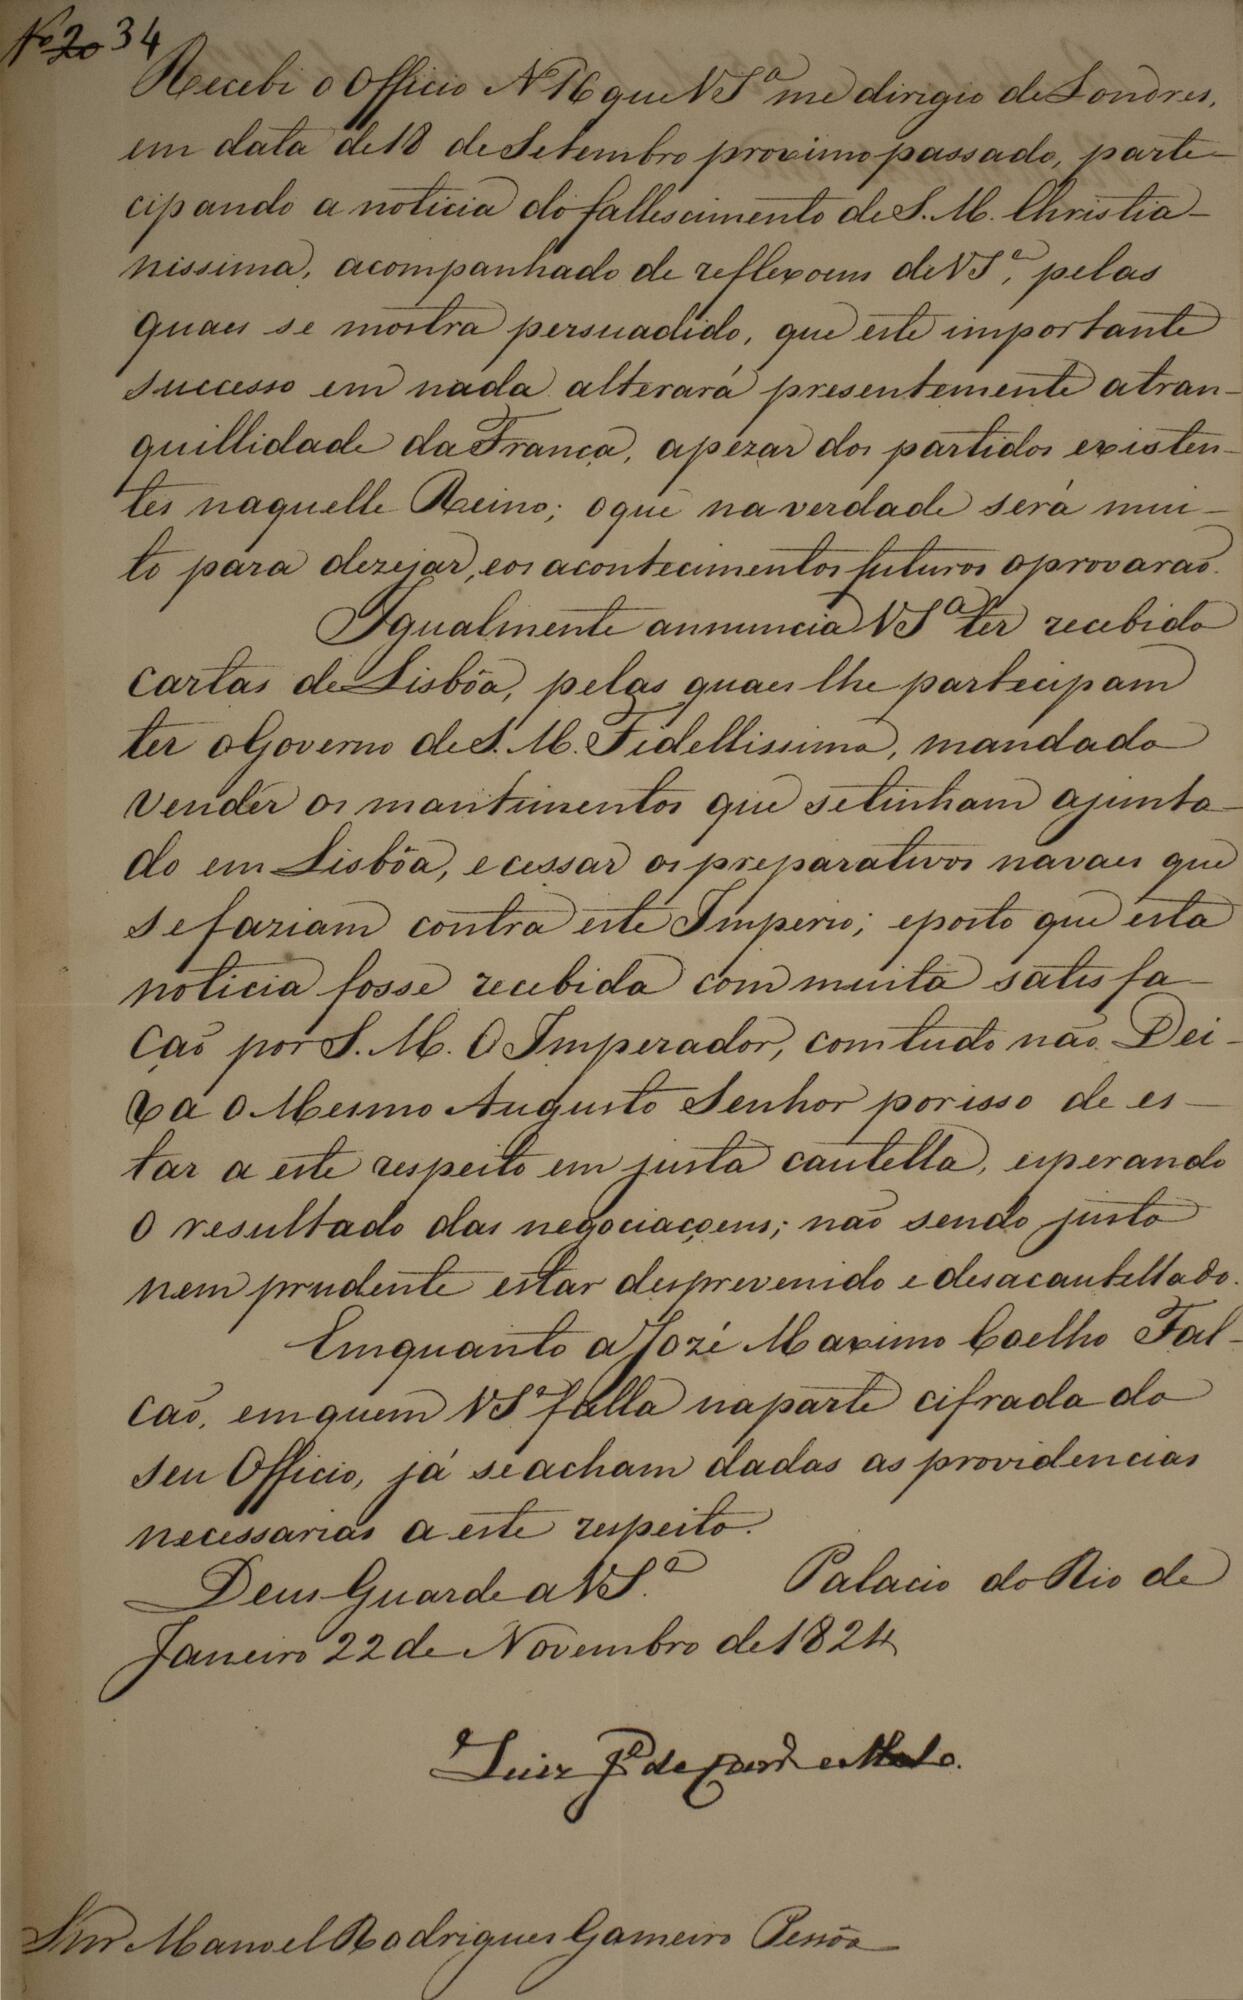 Nº 20 34
Recebi o Officio Nº 16 que VSª me dirigio de Londres,
em data de 18 de Setembro proximo passado, parte-
cipando a noticia do fallescimento de S. M. Christia-
nissima, acompanhado de reflexoens de VSª, pelas
quaes se mostra persuadido, que este importante
successo em nada alterará presentemente a tran-
quillidade da França, apezar dos partidos existen-
tes naquelle Reino; o que na verdade será mui-
to para dezejar, e os acontecimentos futuros o provaraõ.
Igualmente annuncia VSª ter recebido
cartas de Lisbôa, pelas quaes lhe partecipam
ter o Governo de S. M. Fidellissima, mandado
vender os mantimentos que se tinham ajunta-
do em Lisbôa, e cessar os preparativos navaes que
se faziam contra este Imperio; e posto que esta
noticia fosse recebida com muita satisfa-
çaõ por S. M. O Imperador, comtudo naõ Dei-
xa o Mesmo Augusto Senhor por isso de es-
tar a este respeito em justa cautella, esperando
o resultado das negociaçoens; naõ sendo justo
nem prudente estar desprevenido e desacautellado.
Emquanto a Jozé Maximo Coelho Fal-
caõ, em quem VSª falla na parte cifrada do
seu Officio, já se acham dadas as providencias
necessarias a este respeito.
Deus Guarde a VSª. Palacio do Rio de
Janeiro 22 de Novembro de 1824
Luiz Jº de Carvº e Mello.
Snr Manoel Rodrigues Gameiro Pessôa